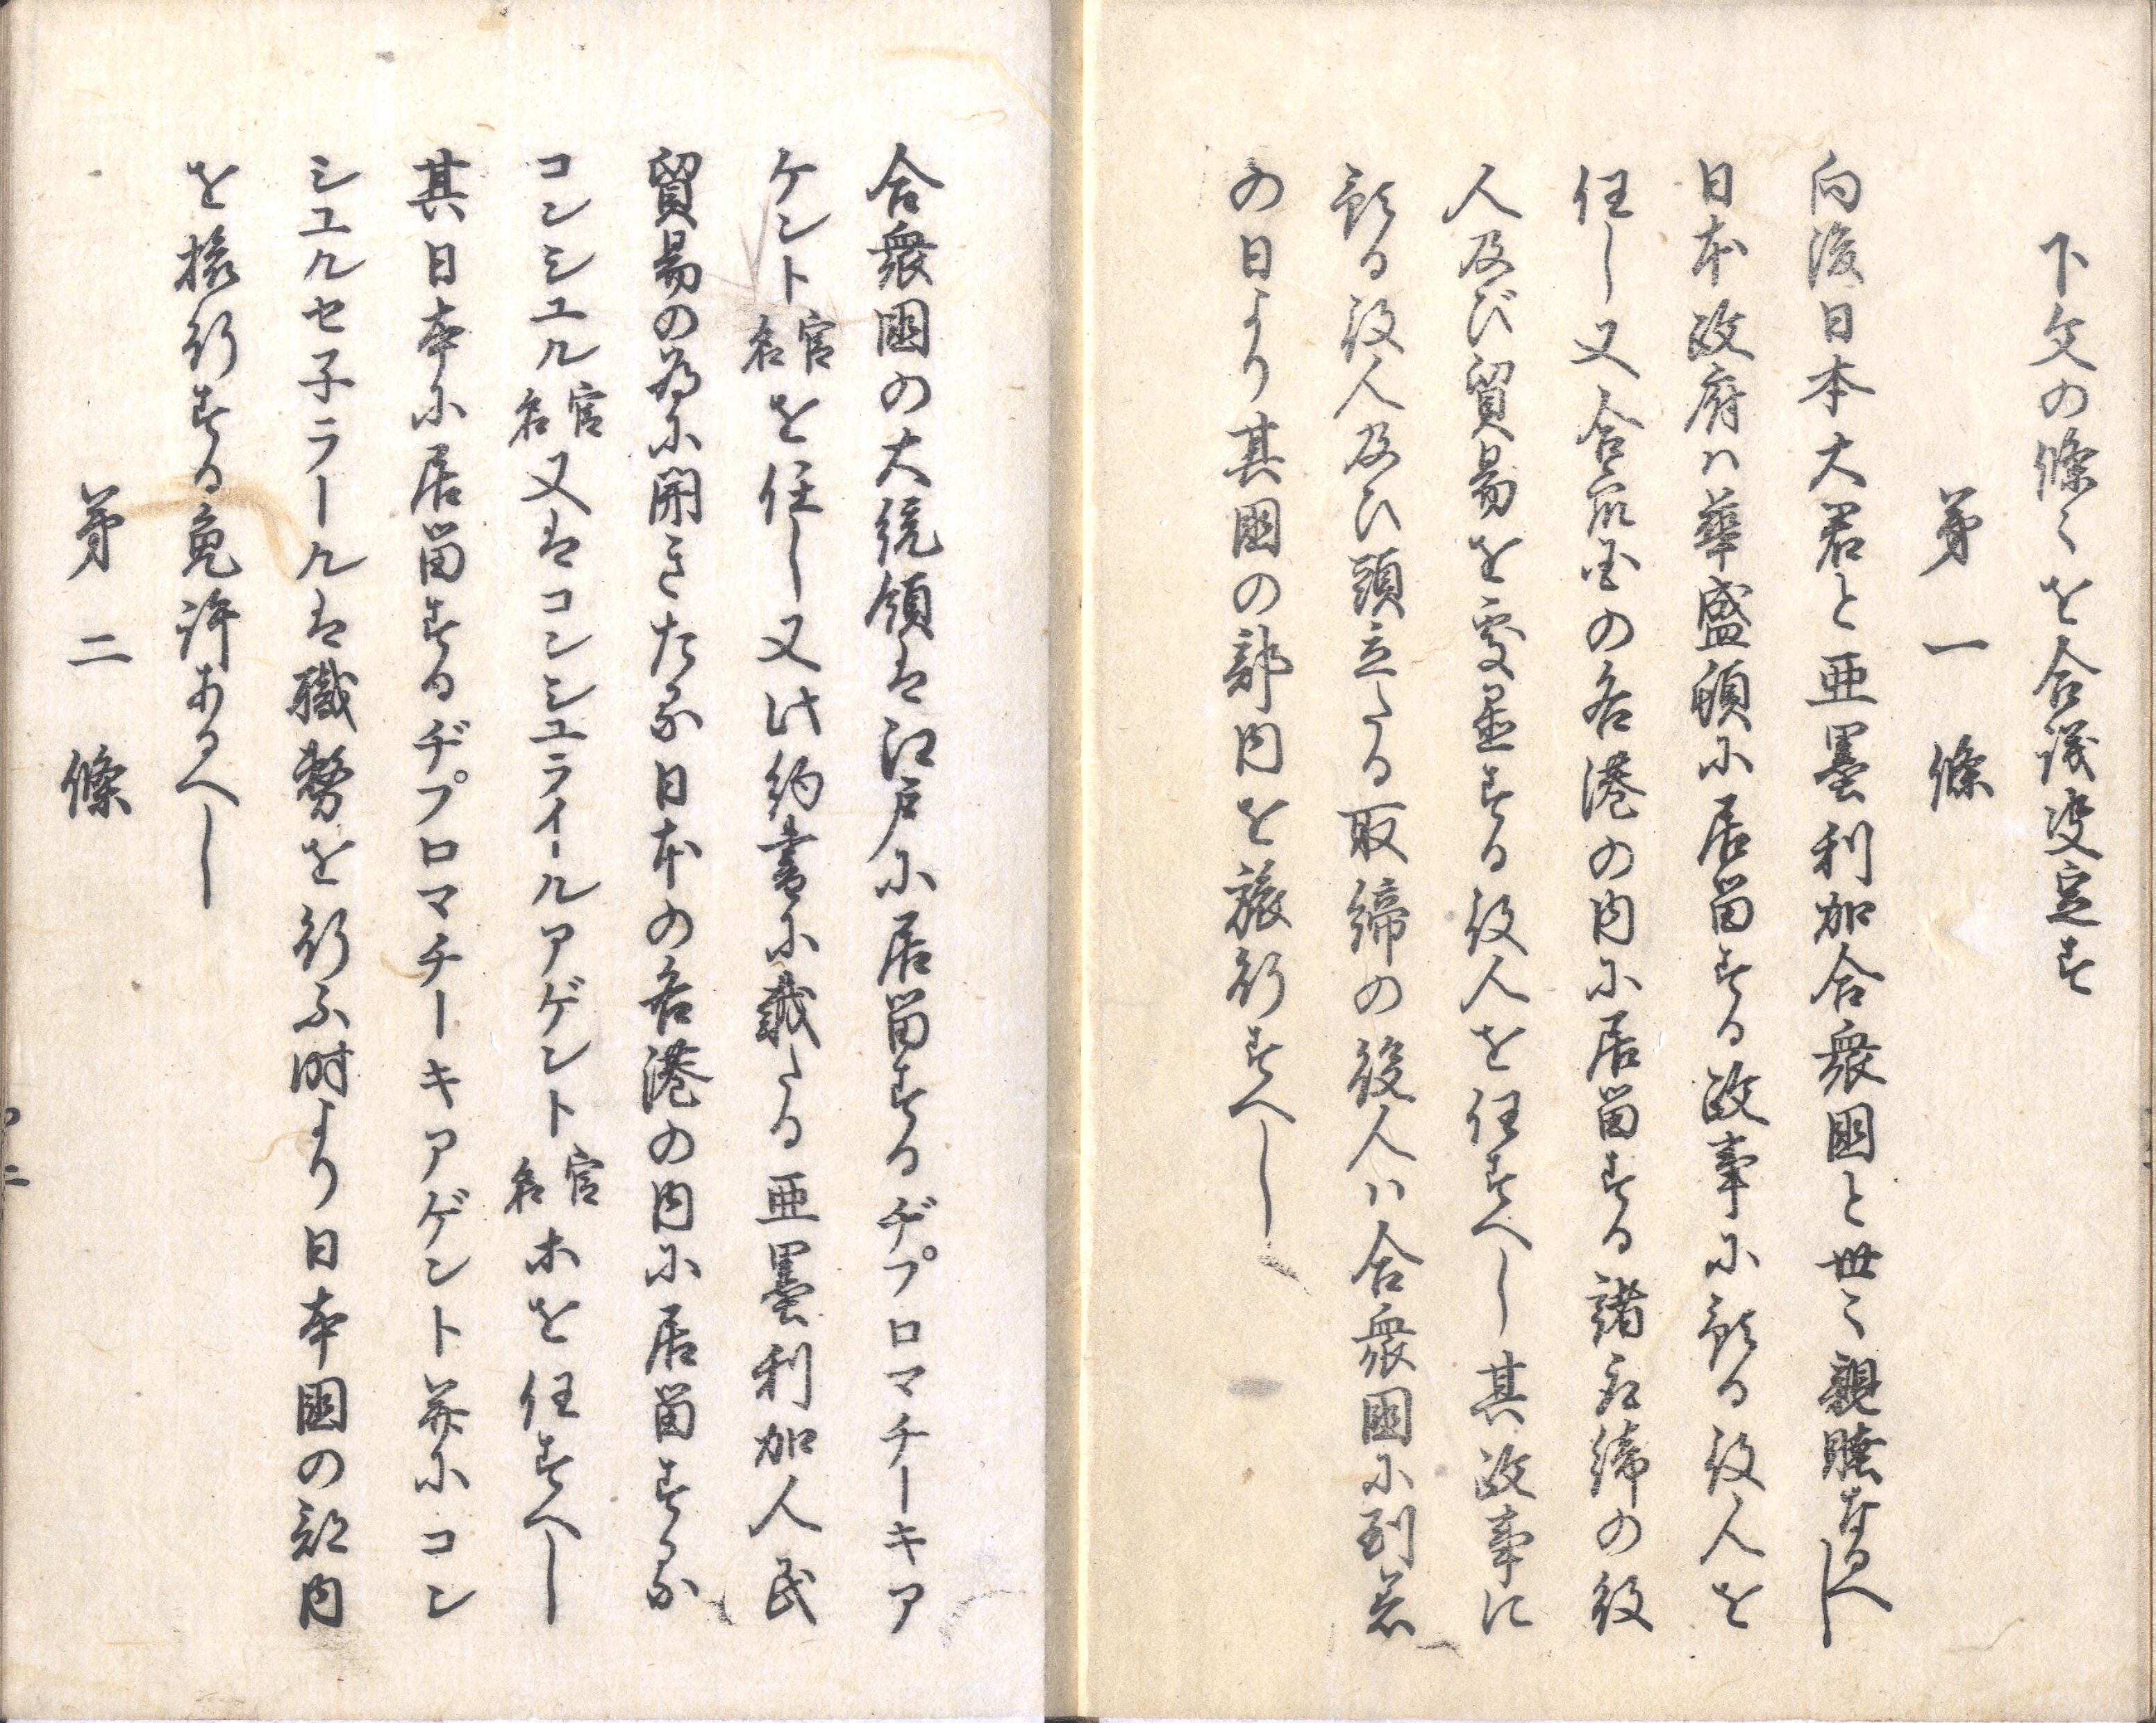 下文の條々を合議决定す
第一條
向後日本大君と亜墨利加合衆国と世々親睦なるへし
日本政府ハ華盛頓に居留する政事に預る役人を
任し又合衆国の各港の内に居留する諸取締の役
人及び貿易を處置する役人を任すへし其政事に
預る役人及ひ頭立たる取締の役人ハ合衆国に到着
の日より其国の部内を旅行すへし
合衆国の大統領は江戸に居留するヂプロマチーキア
ケント官名を任し又此約書に載たる亜墨利加人民
貿易の為に開きたる日本の各港の内に居留する
コンシユル官名又はコンシユライールアゲント官名ホを任すへし
其日本に居留するヂプロマチーキアゲント並にコン
シユルセ子ラールは職務を行ふ時より日本国の部内
を旅行する免許あるへし
第二條